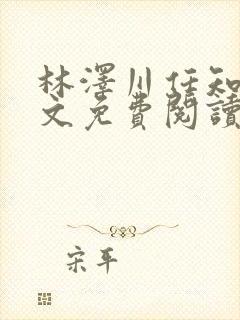 林澤川任知
文免費閱讀
宋平